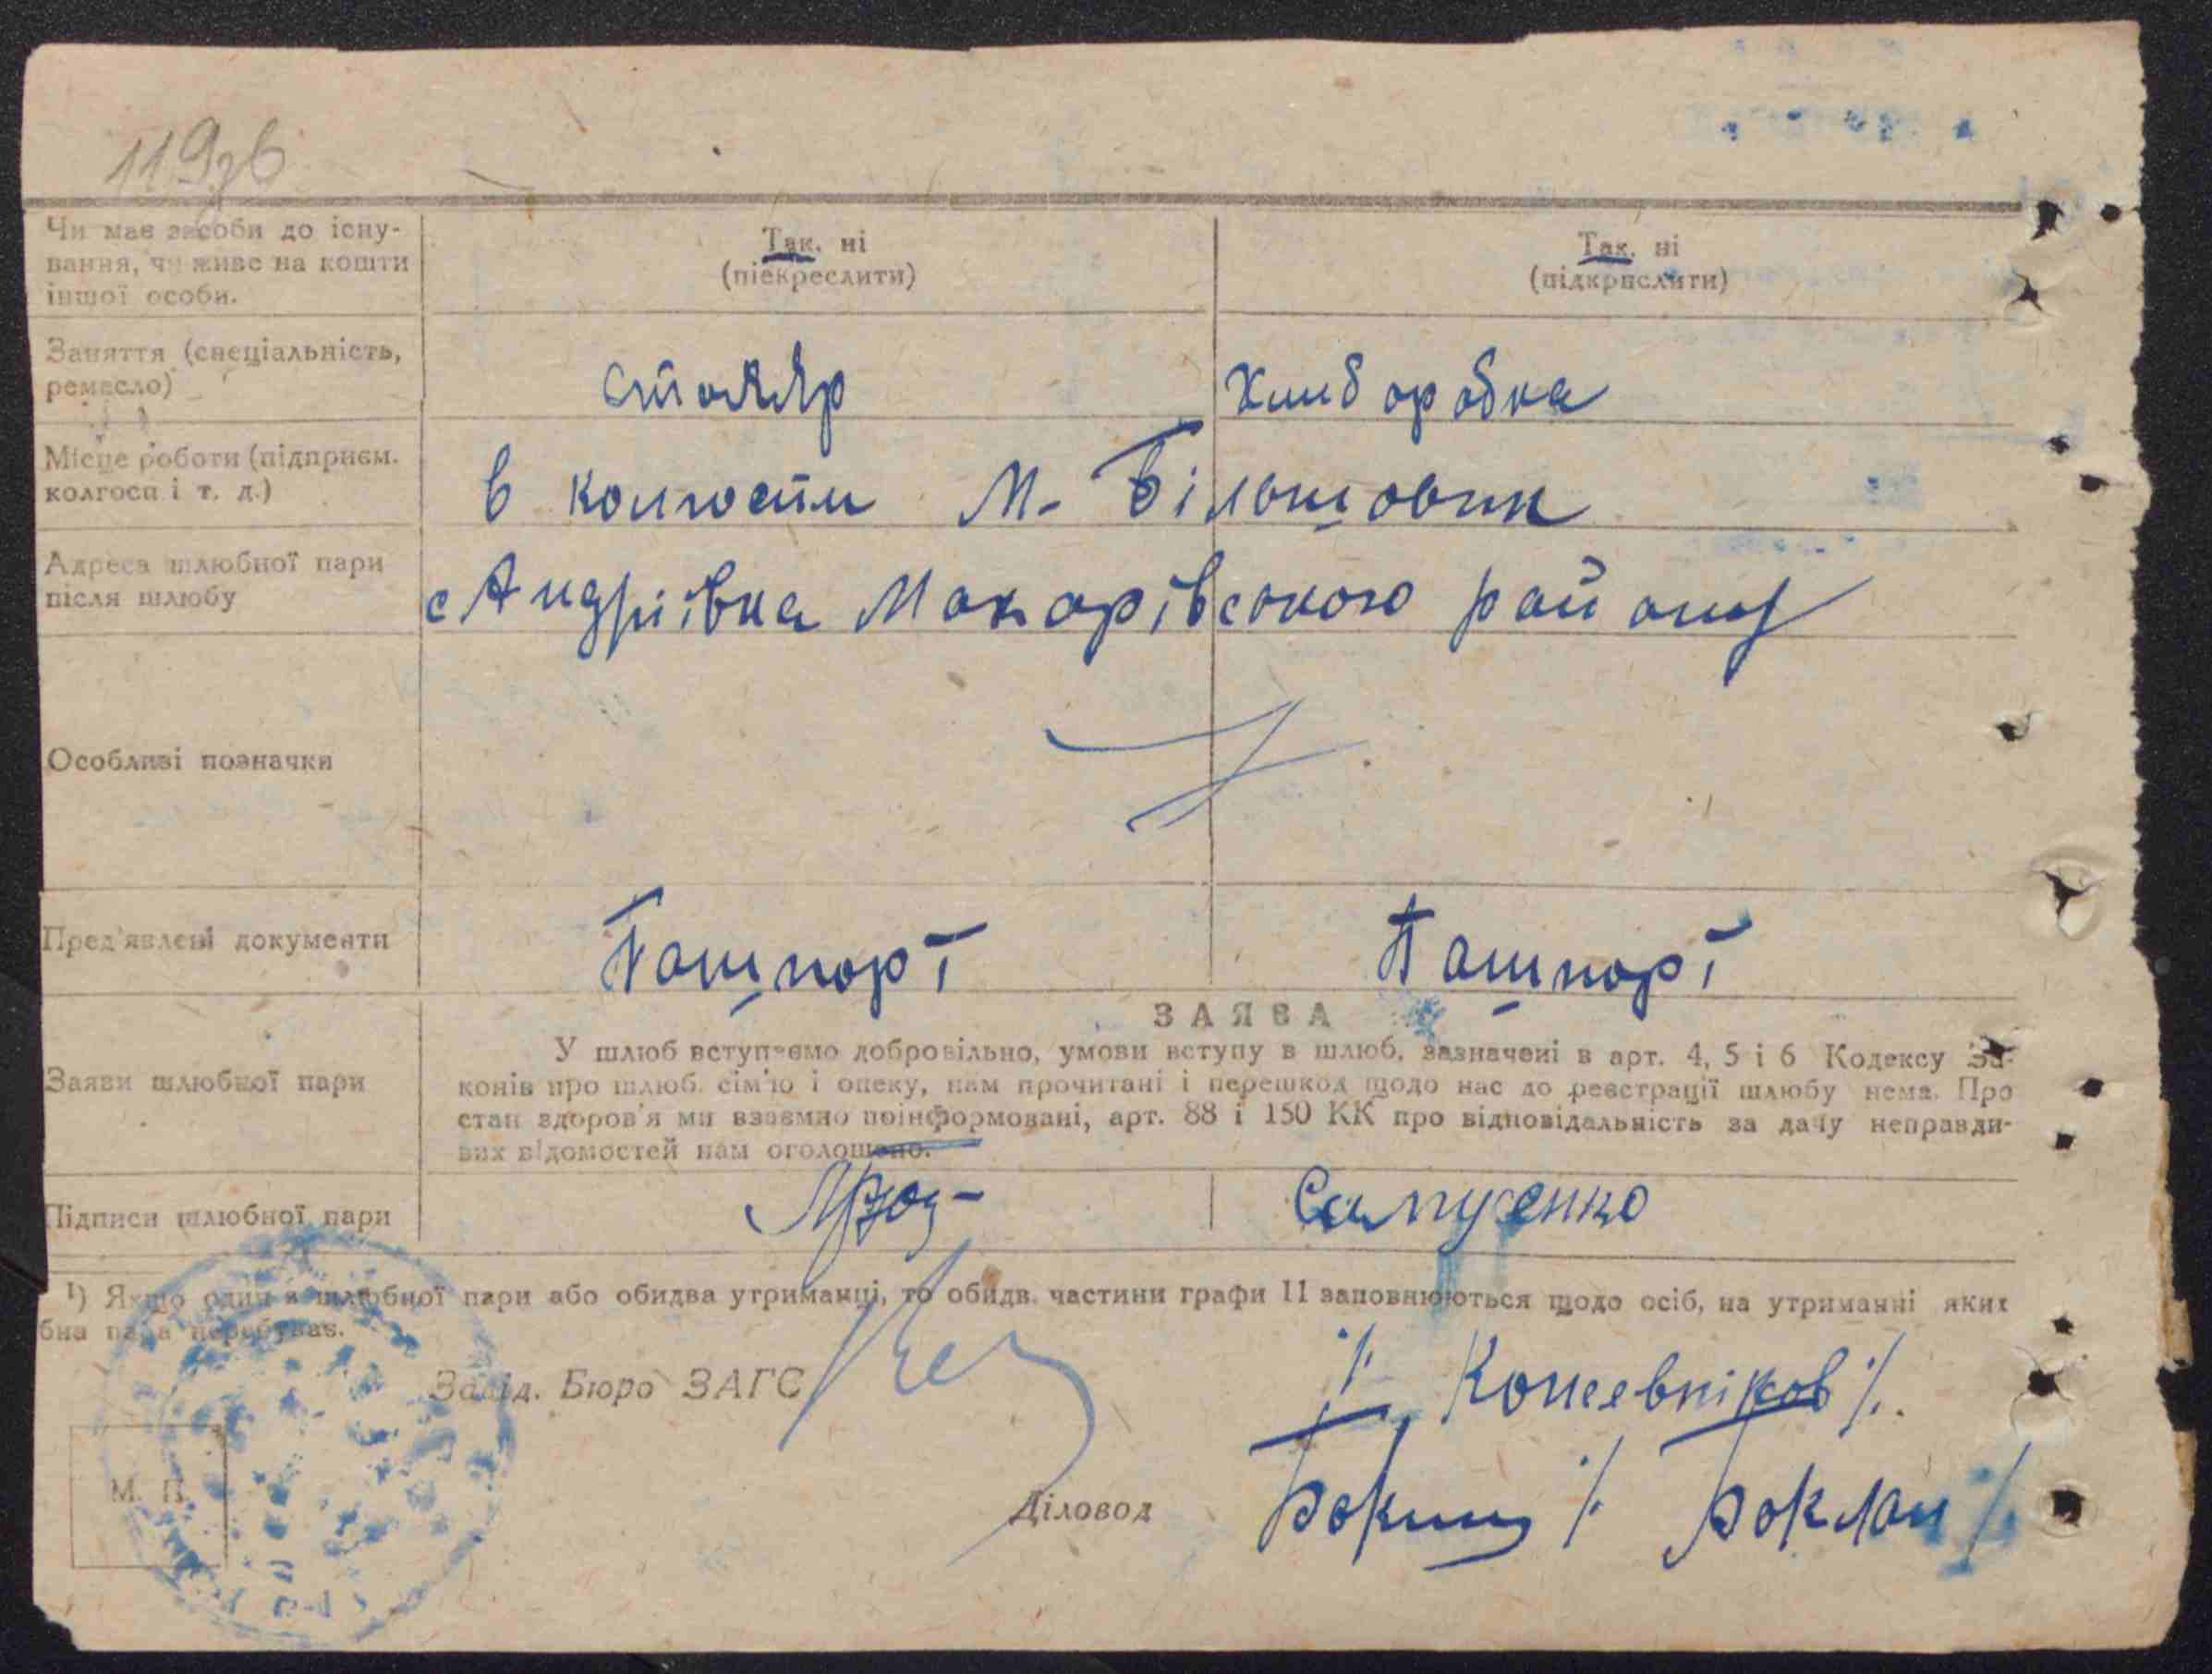 119зв
Чи має засоби до існу-
вання, чи живе на кошти
іншої особи.
Так, ні
(піекреслити)
Так, ні
(підкрислити)
Заняття (спеціальність,
ремесло)
столяр
хлиборобка
Місце роботи (підприєм.
колгосп і т. д.)
в колгоспи М-Більшовик
Адреса шлюбної пари
після шлюбу
с Андріївка Макарівського району
Особливі позначки
Пред'явлені документи
Пашпорт
Пашпорт
Заяви шлюбної пари
ЗАЯВА
У шлюб вступаємо добровільно, умови вступу в шлюб, зазначені в арт. 4, 5 і 6 Кодексу За-
конів про шлюб, сім'ю і опеку, нам прочитані і перешкод щодо нас до реєстрації шлюбу нема. Про
стан здоров'я ми взаємно поінформовані, арт. 88 і 150 КК про відповідальність за дачу неправди-
вих відомостей нам оголошено.
Підписи шлюбної пари
Сапусенко
¹) Якщо один з шлюбної пари або обидва утриманці, то обидв. частини графи 11 заповнюються щодо осіб, на утриманні яких
бна пара перебуває.
Завід. Бюро ЗАГС
/. Кожевніков /.
М. П.
Діловод
/. Боклан /.